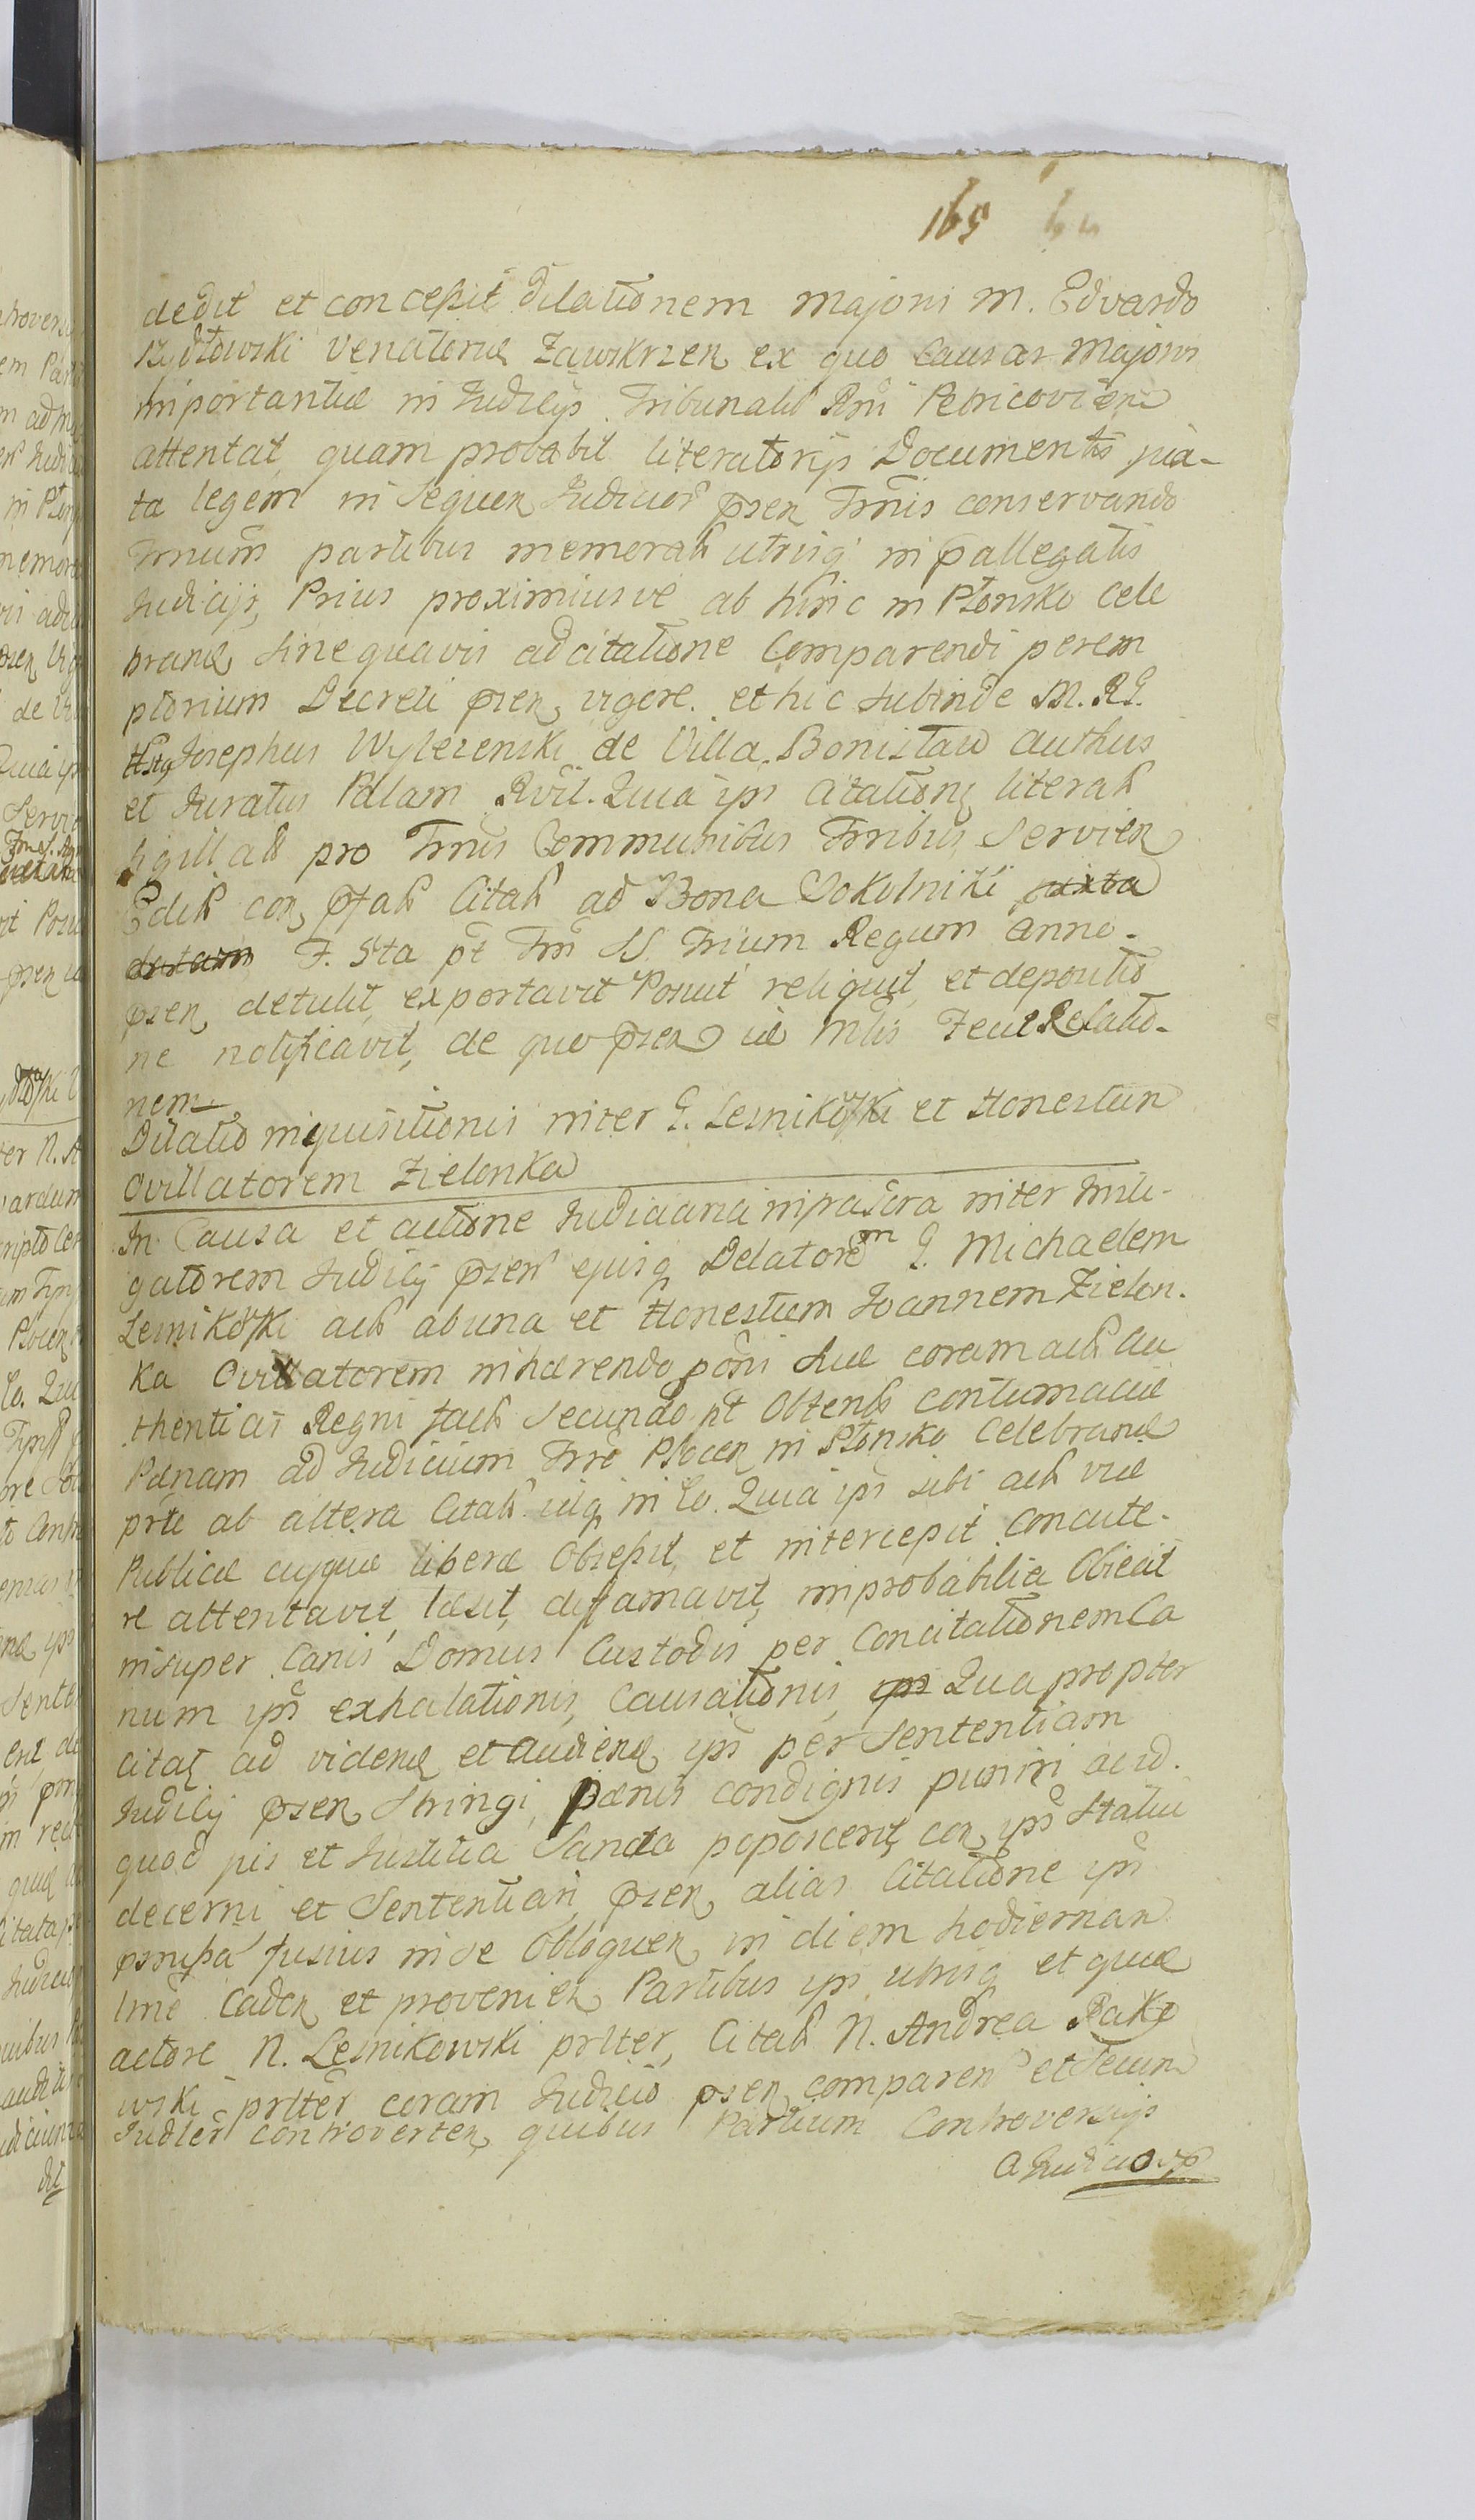 165
dedit et concessit dilationem majoris M. Edvardo
Szydłowski Venatoriæ Zawskrzen ex quo Causas Majoris
importantiæ in Judicijs Tribunalis Rni Petricovien
attentat, quam probabit literatorijs Documentis jux-
ta legem in sequen Judicior psen Trnis conservando
Trnum partibus memorat utrisq in pallegatis
Judicijs, Prius proximiusve ab hinc in Płonsko Cele
brand sine quavis adcitatione Comparendi perem
ptorium Decreti psen vigore. et hic subinde M. RG.
Josephus Wylezenski de Villa Bonisław authus
et Juratus Palam Rvit. Quia ips Citationes literat
sigillat pro Trnis Communibus Trribus Servien
Edit con ptat Citat ad Bona Sokolniki juxta
F. 5ta pt Frn SS. Trium Regum Anno
psen detulit, exportavit Posuit reliquit, et depositio
ne notificavit, de quo psen Mlis Fecit Relatio-
nem
Dilatio inquisitionis inter G. Lesnikowski et Honestum
Ovillatorem Zielonka
In Causa et actione Judiciaria infrascra inter Insti-
gatorem Judicij psen ejusq Delatorem G. Michaelem
Lesnikowski act ab una et Honestum Joannem Zielon-
ka Ovillatorem inhærendo poni suæ coram act Au
thenticis Regni fact Secundo pt Obtent contumaciæ
Pænam ad Judicium Trre Płocen in Płonsko Celebrand
prte ab altera Citat idq in Eo. Quia ips sibi act viæ
Publicæ cuique liberæ Obsepsit, et intercepit Concute-
re attentavit, læsit, diffamavit, improbabilia Obiecit
insuper Canis Domus Custodis per Concitationem Ca
num ips exhalationis, Causationis, ips Quapropter
citat ad vidend et audiend ips per Sententiam
Judicij psen Stringi, pænis condignis puniri acid.
quod jus et Justitia Sancta poposcerit, con ips Statui
decerni et Sententiari psen, alias Citatione ips
fusius in se Obloquen in diem hodiernam
Caden et provenien Partibus ips utrisq et quæ
actore N. Lesnikowski prlter, Citat N. Andrea Rako
wski prlter coram Judicio psen comparen et secum
Judler controverten, quibus Partium Controversijs
a Judicio